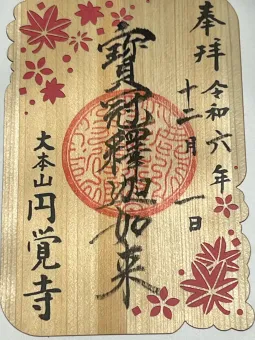 奉拝 令和六年
十二月一日
寶冠釋迦如来
大本山 円覚寺